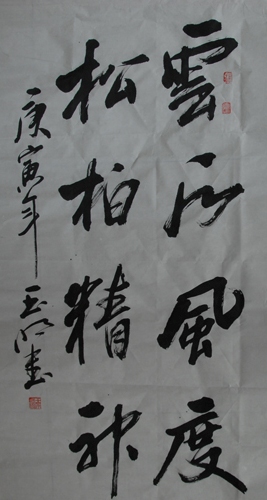 雲石風度
松柏精神
庚寅年 玉明書